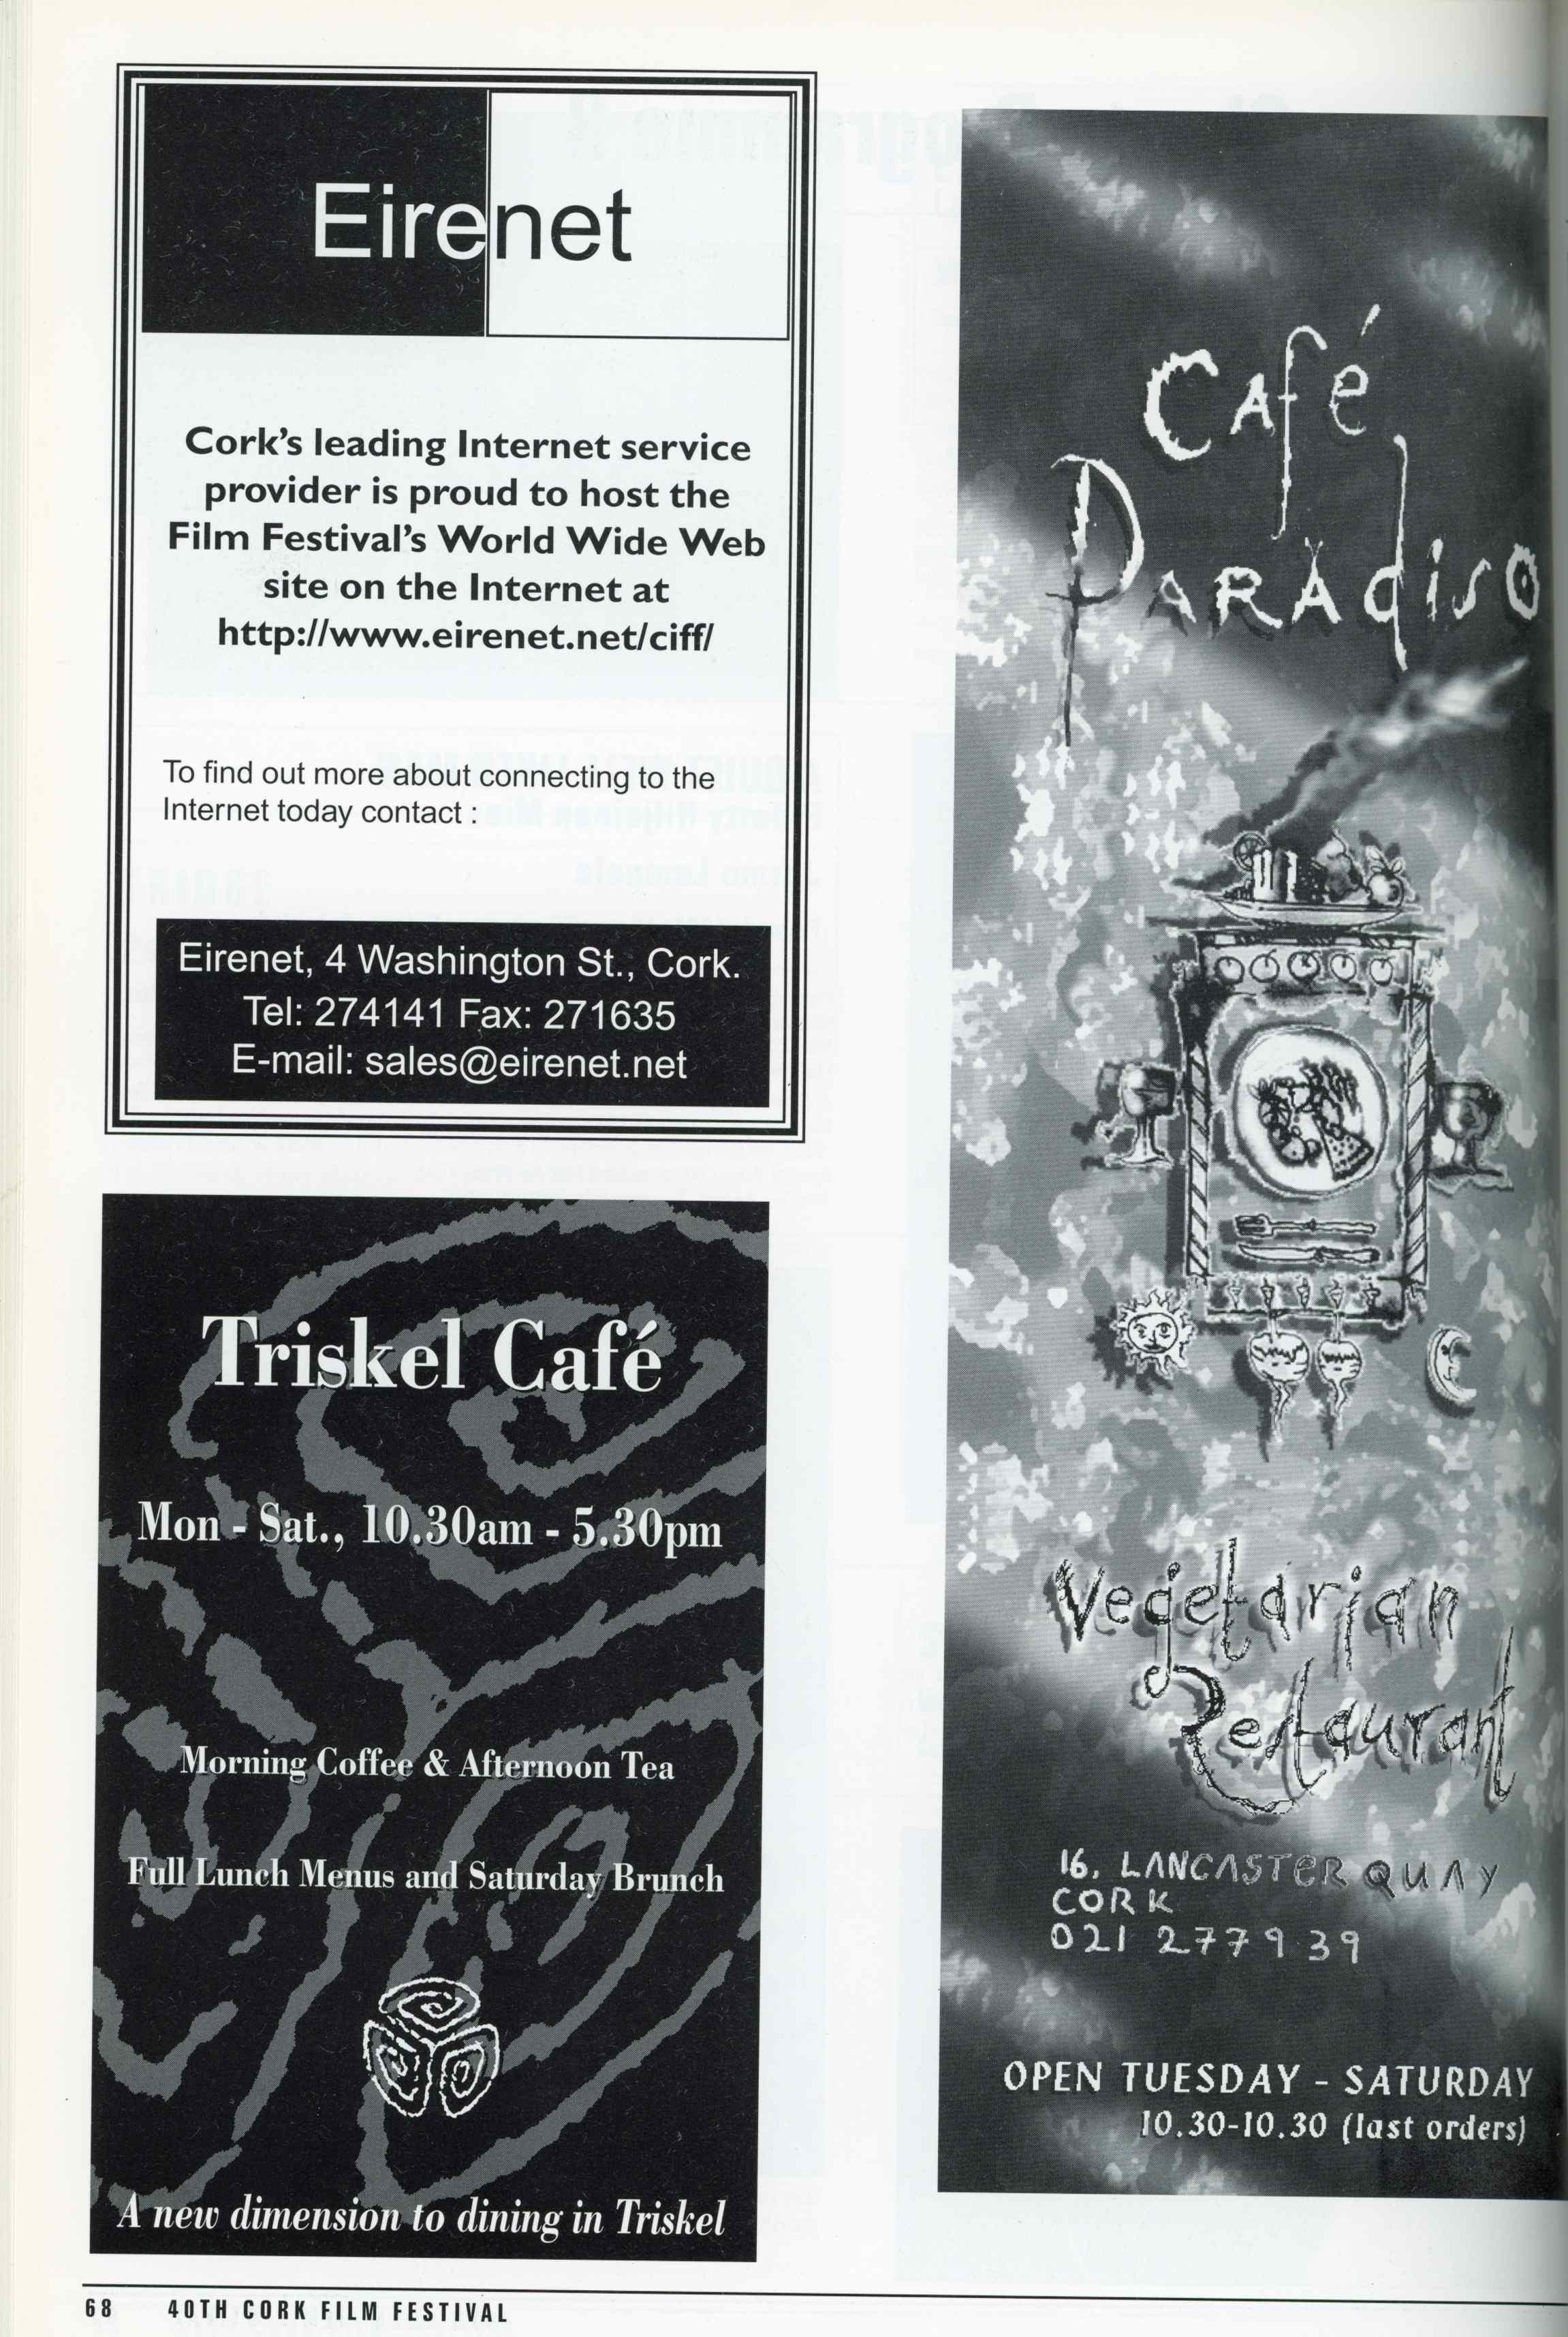 Eirenet
Cork's leading Internet service
provider is proud to host the
Film Festival's World Wide Web
site on the Internet at
http://www.eirenet.net/ciff/
To find out more about connecting to the
Internet today contact :
Eirenet, 4 Washington St., Cork.
Tel: 274141 Fax: 271635
E-mail: sales@eirenet.net
Triskel Café
Mon - Sat., 10.30am - 5.30pm
Morning Coffee & Afternoon Tea
Full Lunch Menus and Saturday Brunch
A new dimension to dining in Triskel
Café
Paradiso
Vegetarian
Restaurant
16, LANCASTER QUAY
CORK
021 277939
OPEN TUESDAY - SATURDAY
10.30-10.30 (last orders)
68 40TH CORK FILM FESTIVAL